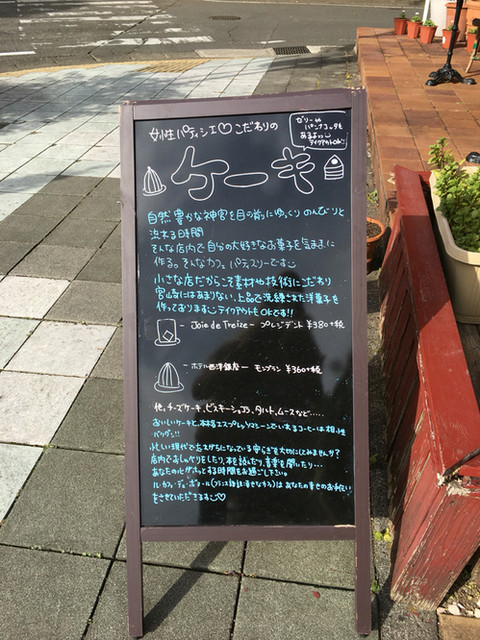 女性パティシエ♡こだわりの
ゼリーや
パンナコッタも
あるよっ
テイクアウトOk
ケーキ
自然豊かな神宮を目の前にゆっくりのんびりと
流れる時間
そんな店内で自分の大好きなお菓子を気ままに
作る。そんなカフェパティスリーです
小さな店だからこそ素材や技術にこだわり
宮崎にはあまりない、上品で洗練された洋菓子を
作っております テイクアウトもOkです!!
— Joie de Treize — プレジデント ¥380+税
— ホテル西洋銀座 — モンブラン ¥360+税
他、チーズケーキ、ビスキーショコラ、タルト、ムースなど……
おいしいケーキと、本格エスプレッソマシーンでいれるコーヒーは相性
バッグン!!
忙しい現代で忘れがちになっている安らぎを大切にしてみませんか?
店内でおしゃべりをしたり、本を読んだり、音楽を聞いたり…
あなたの心がホッとする時間をお過ごし下さい。
ル・カフェ・デュ・ボヌール(フランス語で幸せなカフェ)は あなたの幸せのお手伝い
をさせていただきます♡